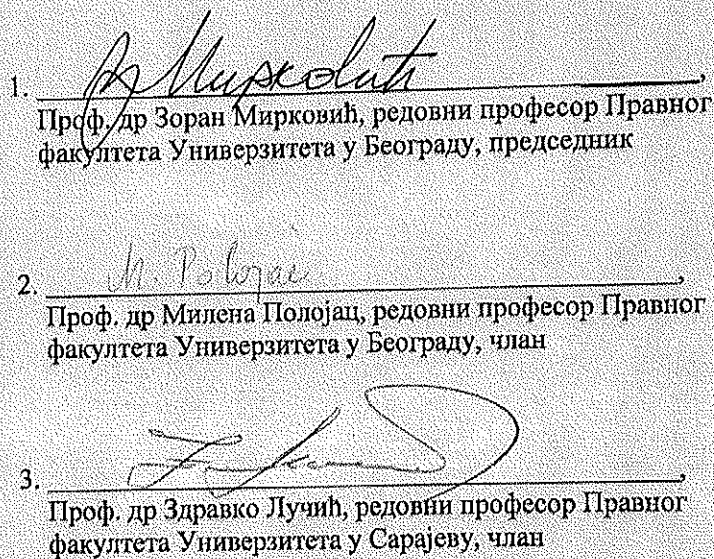 1. Мирковић,
Проф. др Зоран Мирковић, редовни професор Правног
факултета Универзитета у Београду, председник
2. M. Polojac,
Проф. др Милена Полојац, редовни професор Правног
факултета Универзитета у Београду, члан
3. ,
Проф. др Здравко Лучић, редовни професор Правног
факултета Универзитета у Сарајеву, члан